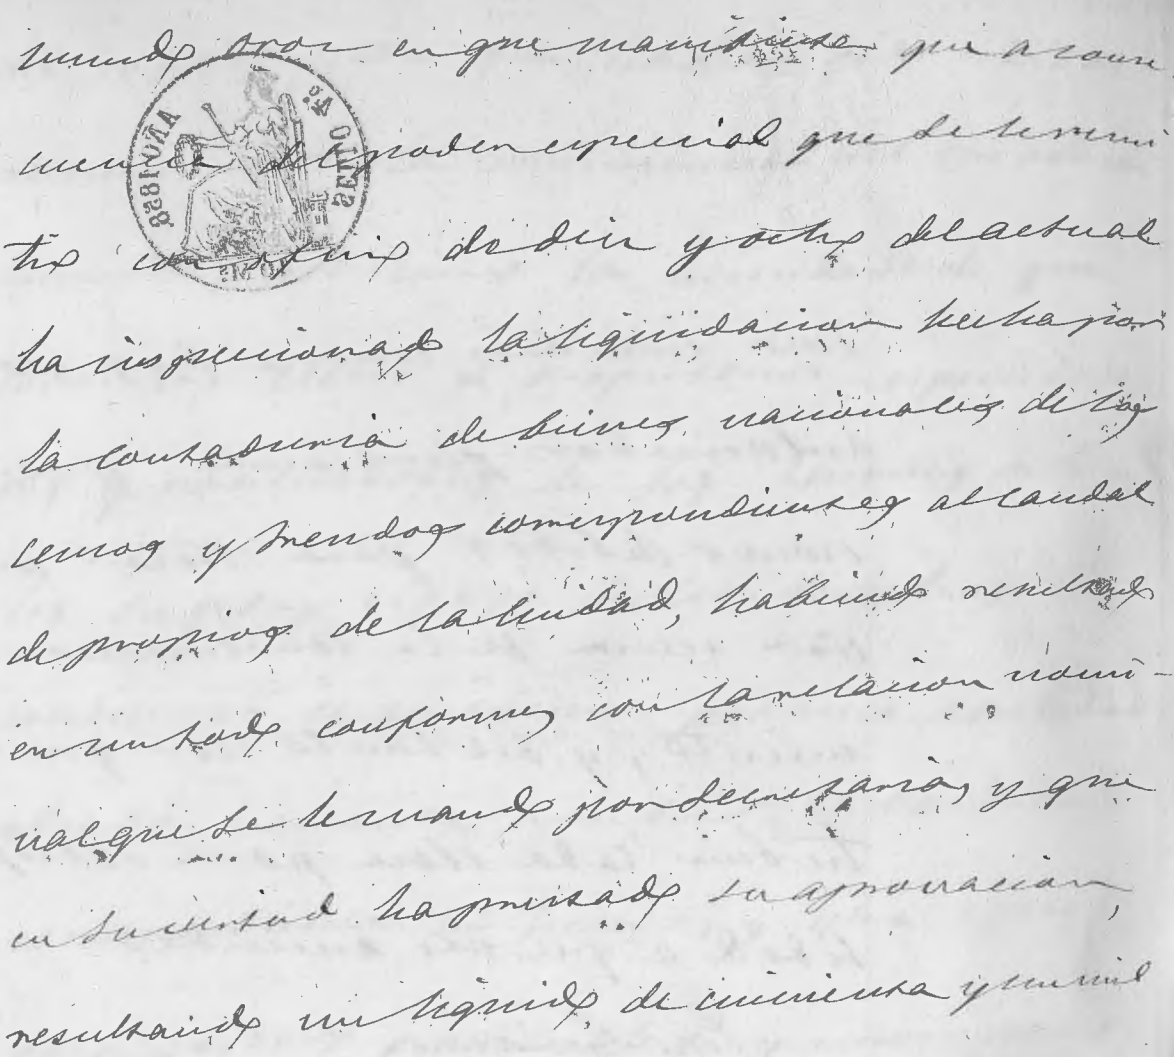 mundo Aroz en que manifiesta que a conse
cuencia del poder especial que se le remi
tio con oficio de diez y ocho del actual
ha inspeccionado la liquidacion hecha por
la contaduria de bienes nacionales de los
censos y tiendas correspondientes al caudal
de propios de la Ciudad, habiendo resultado
en un todo conforme, con la relacion nomi-
nal que se le mando por Secretaria, y que
en su virtud ha prestado su aprovacion,
resultando un liquido de cincuenta y un mil
SELLO 4º AÑO 1858